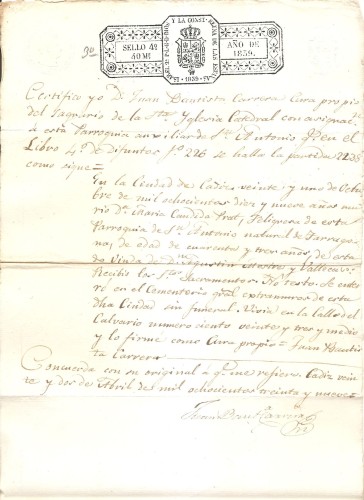 SELLO 4º
40 MS
AÑO DE
1839.
Certifico yo D. Juan Bautista Carrera Cura propio
del Sagrario de la Sta Iglesia Catedral con asignac.
a esta Parroquia auxiliar de Sn Antonio q. en el
Libro 4º de difuntos fº 226 se halla la partida
como sigue
En la Ciudad de Cadiz, veinte y uno de Octu
bre de mil ochocientos diez y nueve años mu
rió Dª Maria Candida Prat, feligresa de esta
Parroquia de Sn Antonio natural de Tarrago
na, de edad de cuarenta y tres años, de esta
do Viuda de Dn Agustin
Recibio los Stos Sacramentos No testo. Se enter
ró en el Cementerio gral extramuros de esta
dha Ciudad sin funeral. Vivia en la Calle del
Calvario numero ciento veinte y tres y medio
y lo firmé como Cura propio Juan Bautis
ta Carrera
Concuerda con su original á q. me refiero. Cadiz vein
te y dos de Abril de mil ochocientos treinta y nueve